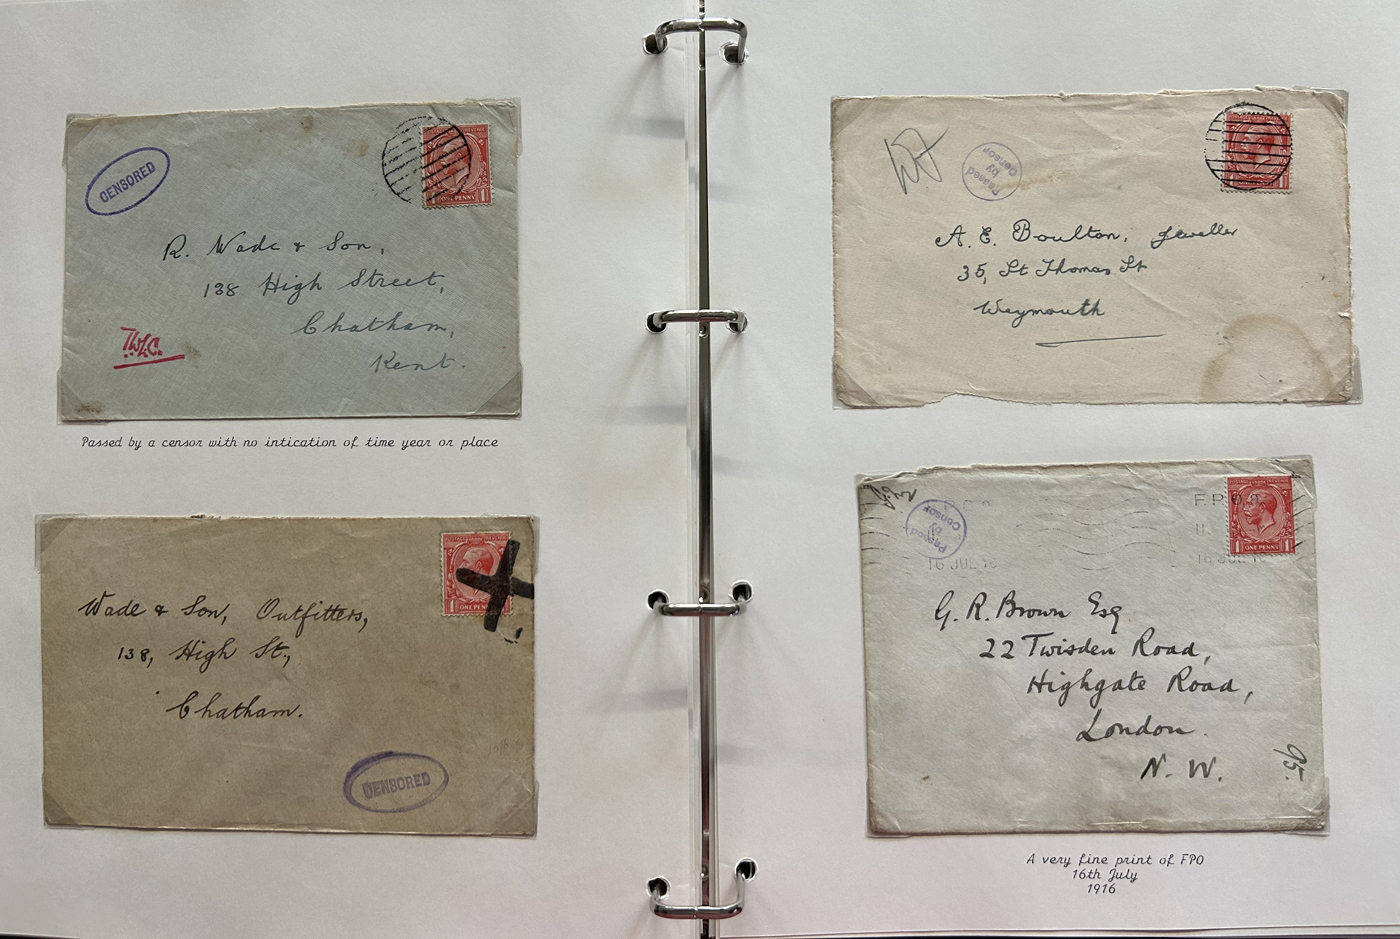 CENSORED
ONE PENNY
R. Wade & Son,
138 High Street,
Chatham,
Kent.
Passed by a censor with no intication of time year or place
1 ONE PENNY
Wade & Son, Outfitters,
138, High St.,
Chatham.
CENSORED
Passed
by
Censor
A. E. Boulton, Jeweller
35, St Thomas St
Weymouth
F.P.O.
Passed
by
Censor
16 JUL 16
1 ONE PENNY 1
G. R. Brown Esq
22 Twisden Road,
Highgate Road,
London.
N. W.
95.
A very fine print of FPO
16th July
1916